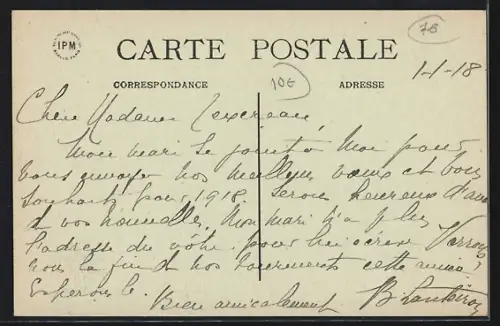 IPM
CARTE POSTALE
78
CORRESPONDANCE
10€
ADRESSE
1-1-18
Chère Madame
Mon mari se joint à Moi pour
vous envoyer nos meilleurs vœux et bons
souhaits pour 1918. Serons heureux d'avoir
d vos nouvelle. Mon mari n'a plus
l'adresse du votre pour lui écrire. Verrons
nous la fin de nos tourments cette année
Esperons le.
Bien amicalement